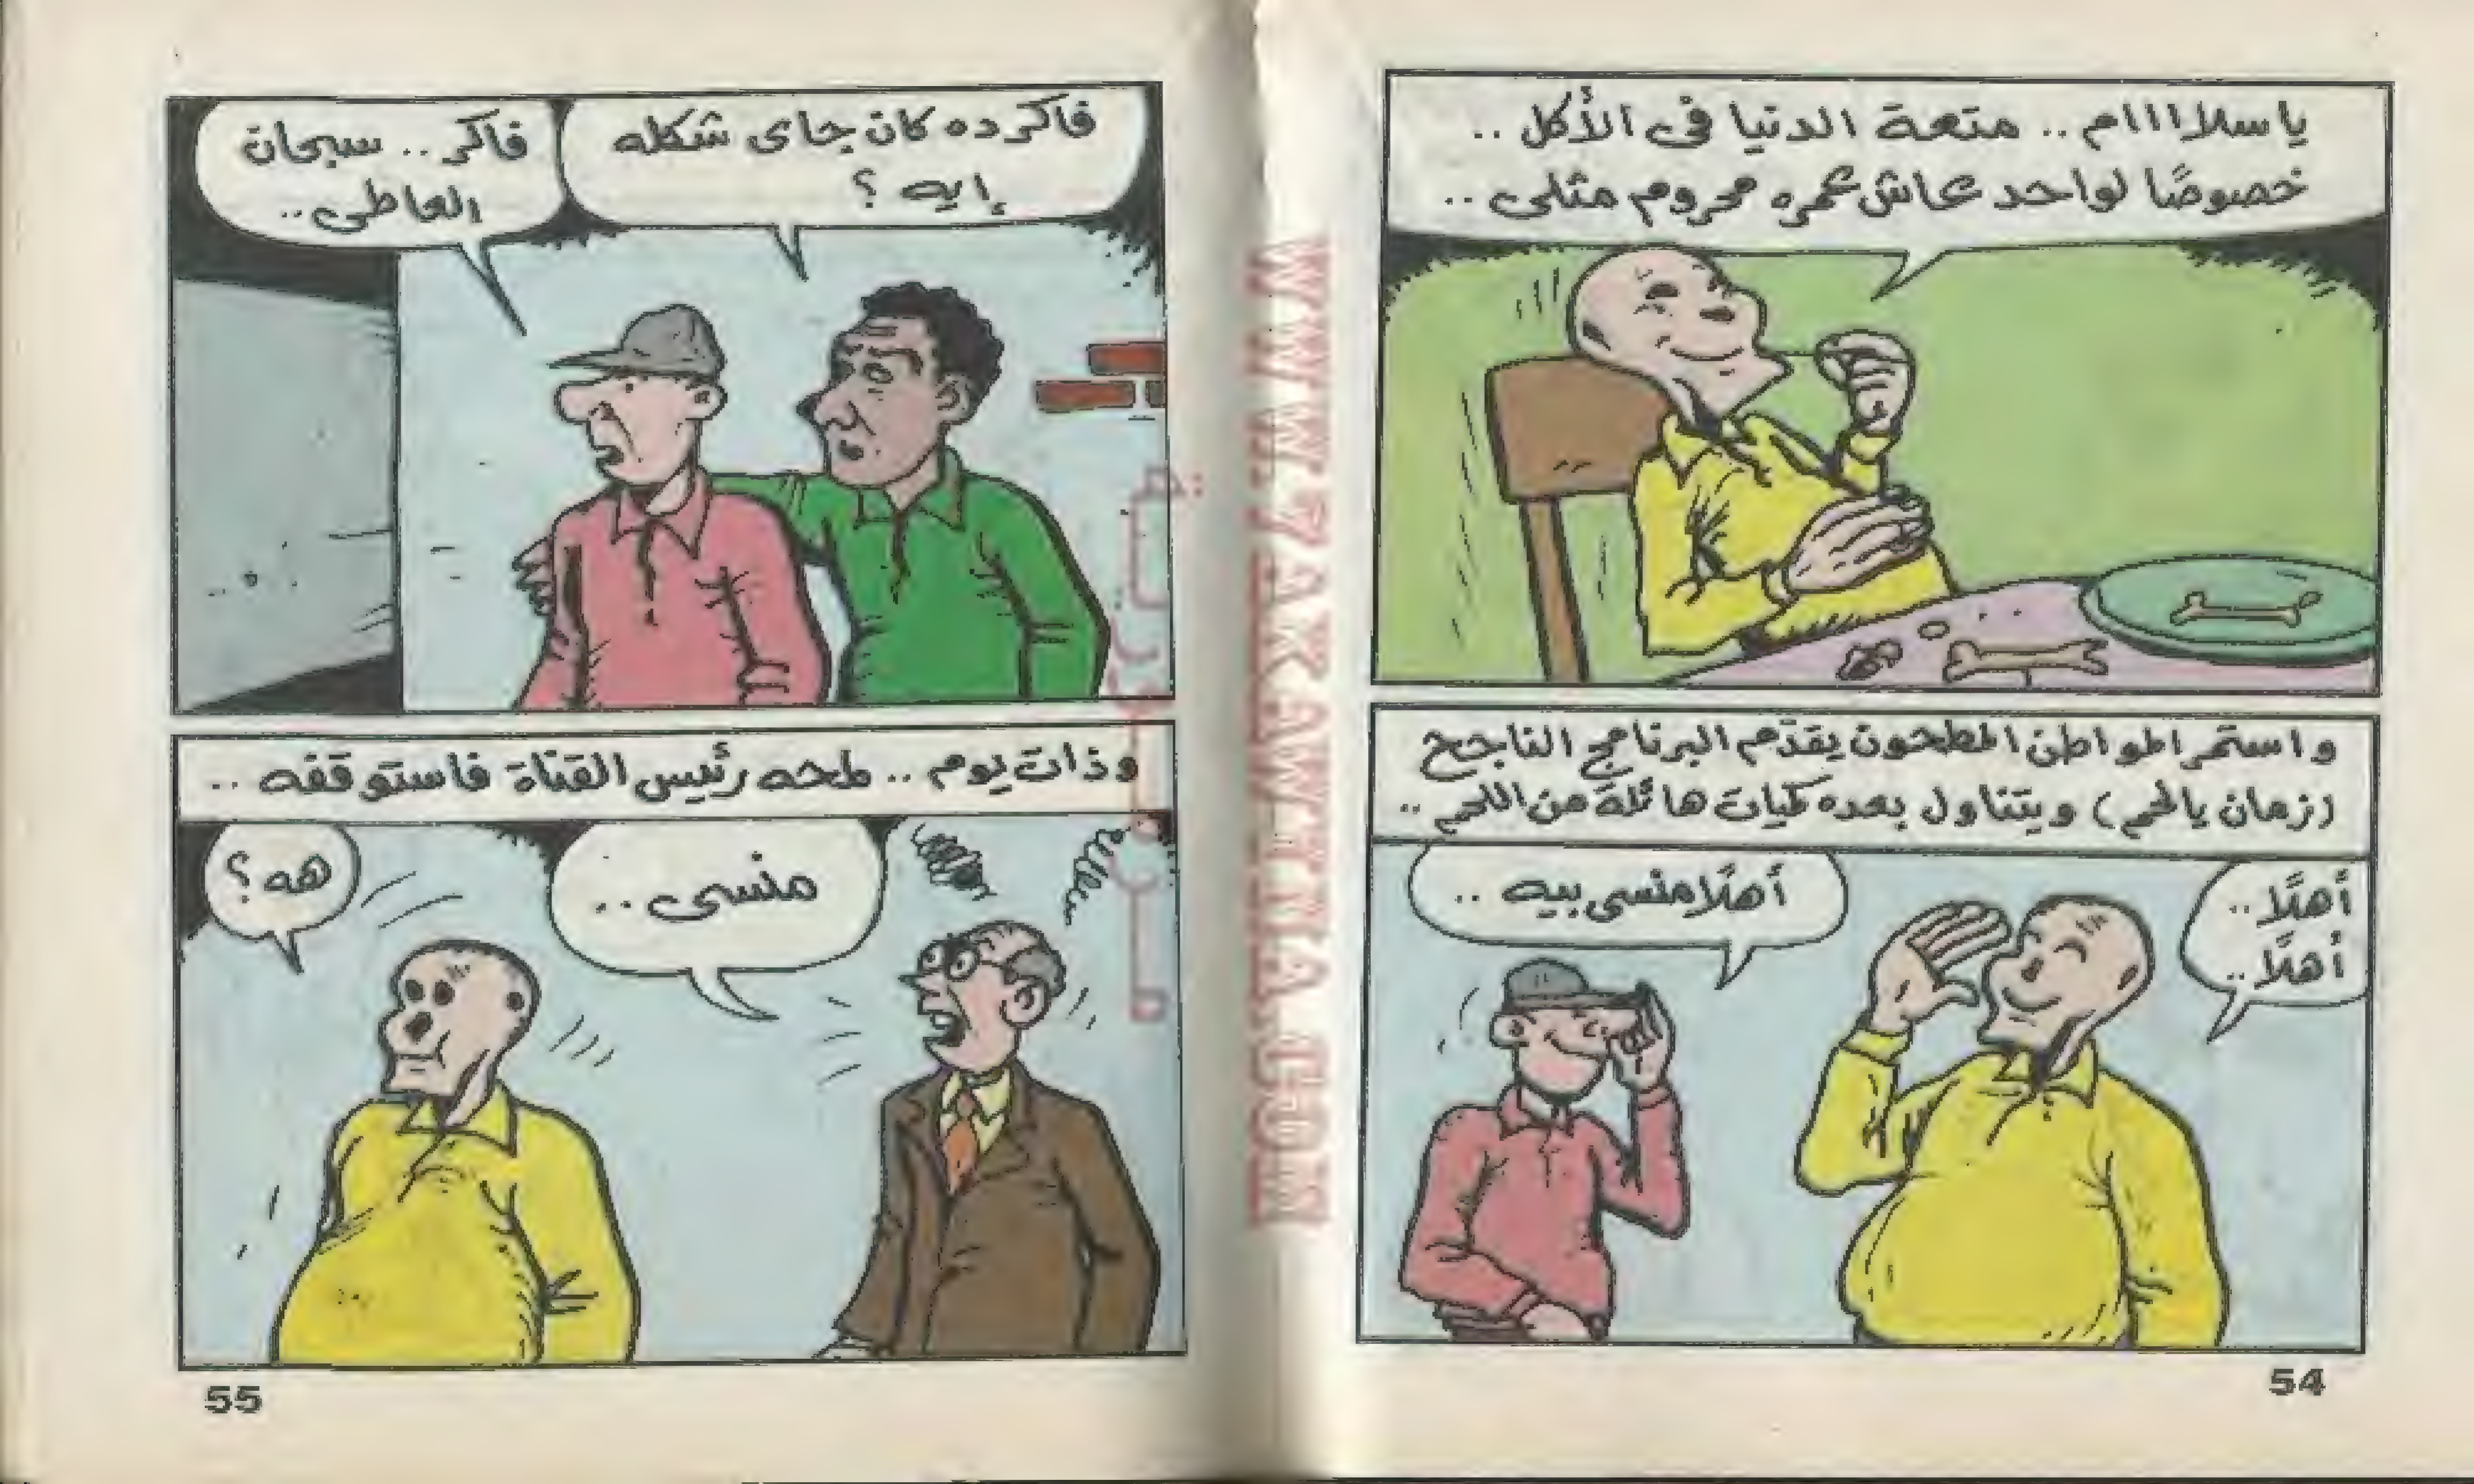 ياسلاااام .. متعة الدنيا فى الأكل ..
خصوصًا لواحد عاش عمره محروم مثلى ..
واستمر المواطن المطحون يقدّم البرنامج الناجح
(زمان يالحم) ويتناول بعده كميات هائلة من اللحم ..
أهلًا ..
أهلًا ..
أهلًا منسى بيه ..
54
فاكر ده كان جاى شكله
إيه ؟
فاكر .. سبحان
العاطى ..
وذات يوم .. لمحه رئيس القناة فاستوقفه ..
منسى ..
هه ؟
55
WWW.7AKAWINA.COM